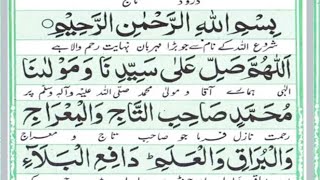 درود تاج
بِسْمِ اللّٰهِ الرَّحْمٰنِ الرَّحِيْمِ
شروع اللہ کے نام سے جو بڑا مہربان نہایت رحم والا ہے
اَللّٰهُمَّ صَلِّ عَلٰى سَيِّدِنَا وَمَوْلٰنَا
الٰہی ہمارے آقا و مولیٰ محمد صلی اللہ علیہ وآلہ وسلم پر
مُحَمَّدٍ صَاحِبِ التَّاجِ وَالْمِعْرَاجِ
رحمت نازل فرما جو صاحب تاج و معراج
وَالْبُرَاقِ وَالْعَلَمِ ط دَافِعِ الْبَلَآءِ